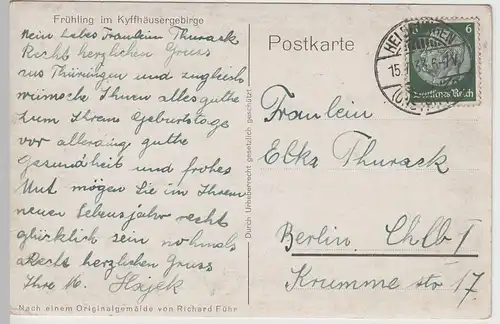 Frühling im Kyffhäusergebirge
Mein Liebes Fräulein Thurack
Recht herzlichen Gruss
aus Thüringen und zugleich
wünsche Ihnen alles guthe
zum Ihrem Geburtstage
vor allerding guthe
Gesundheit und frohes
Mut mögen Sie im Ihrem
neuen Lebensjahr recht
glücklich sein nohmals
Recht herzlichen Gruss
Ihre M. Hajek
Nach einem Originalgemälde von Richard Führ
Durch Urheberrecht gesetzlich geschützt
Postkarte
6
Deutsches Reich
Fräulein
Elka Thurack
Berlin. Chlb 1
Krumme str 17.